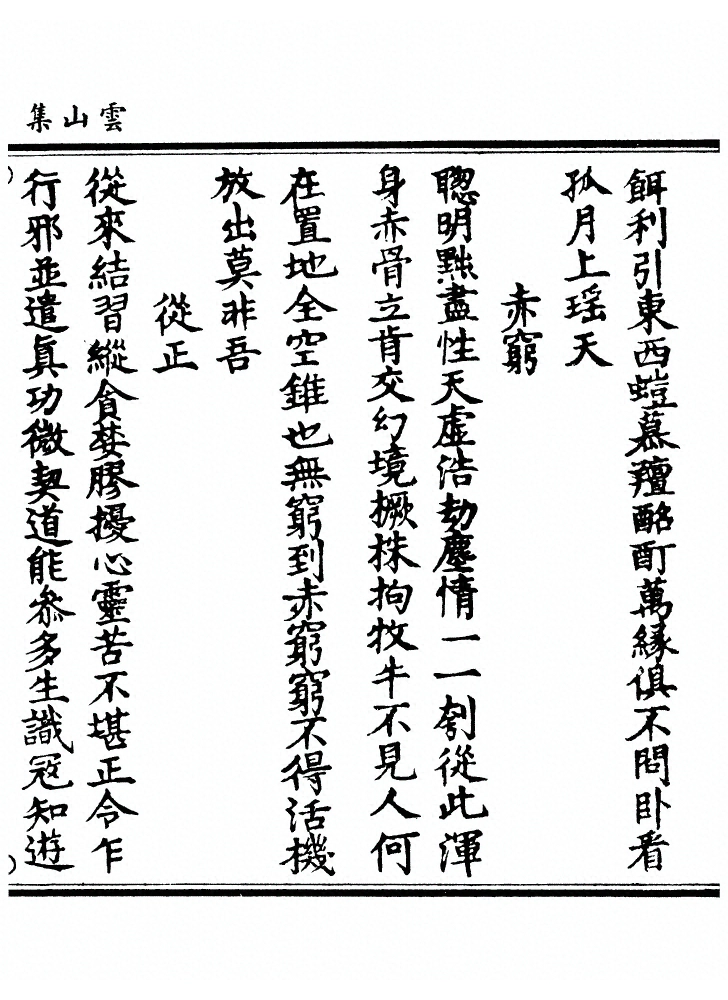 雲山集
餌利引東西螘慕羶酩酊萬緣俱不問卧看
孤月上瑶天
赤窮
聦明黜盡性天虛浩劫塵情一一刳從此渾
身赤骨立肯交幻境橛株拘牧牛不見人何
在置地全空錐也無窮到赤窮窮不得活機
放出莫非吾
從正
從來結習縱貪婪膠擾心靈苦不堪正令乍
行邪並遣眞功微契道能叅多生識冦知遊